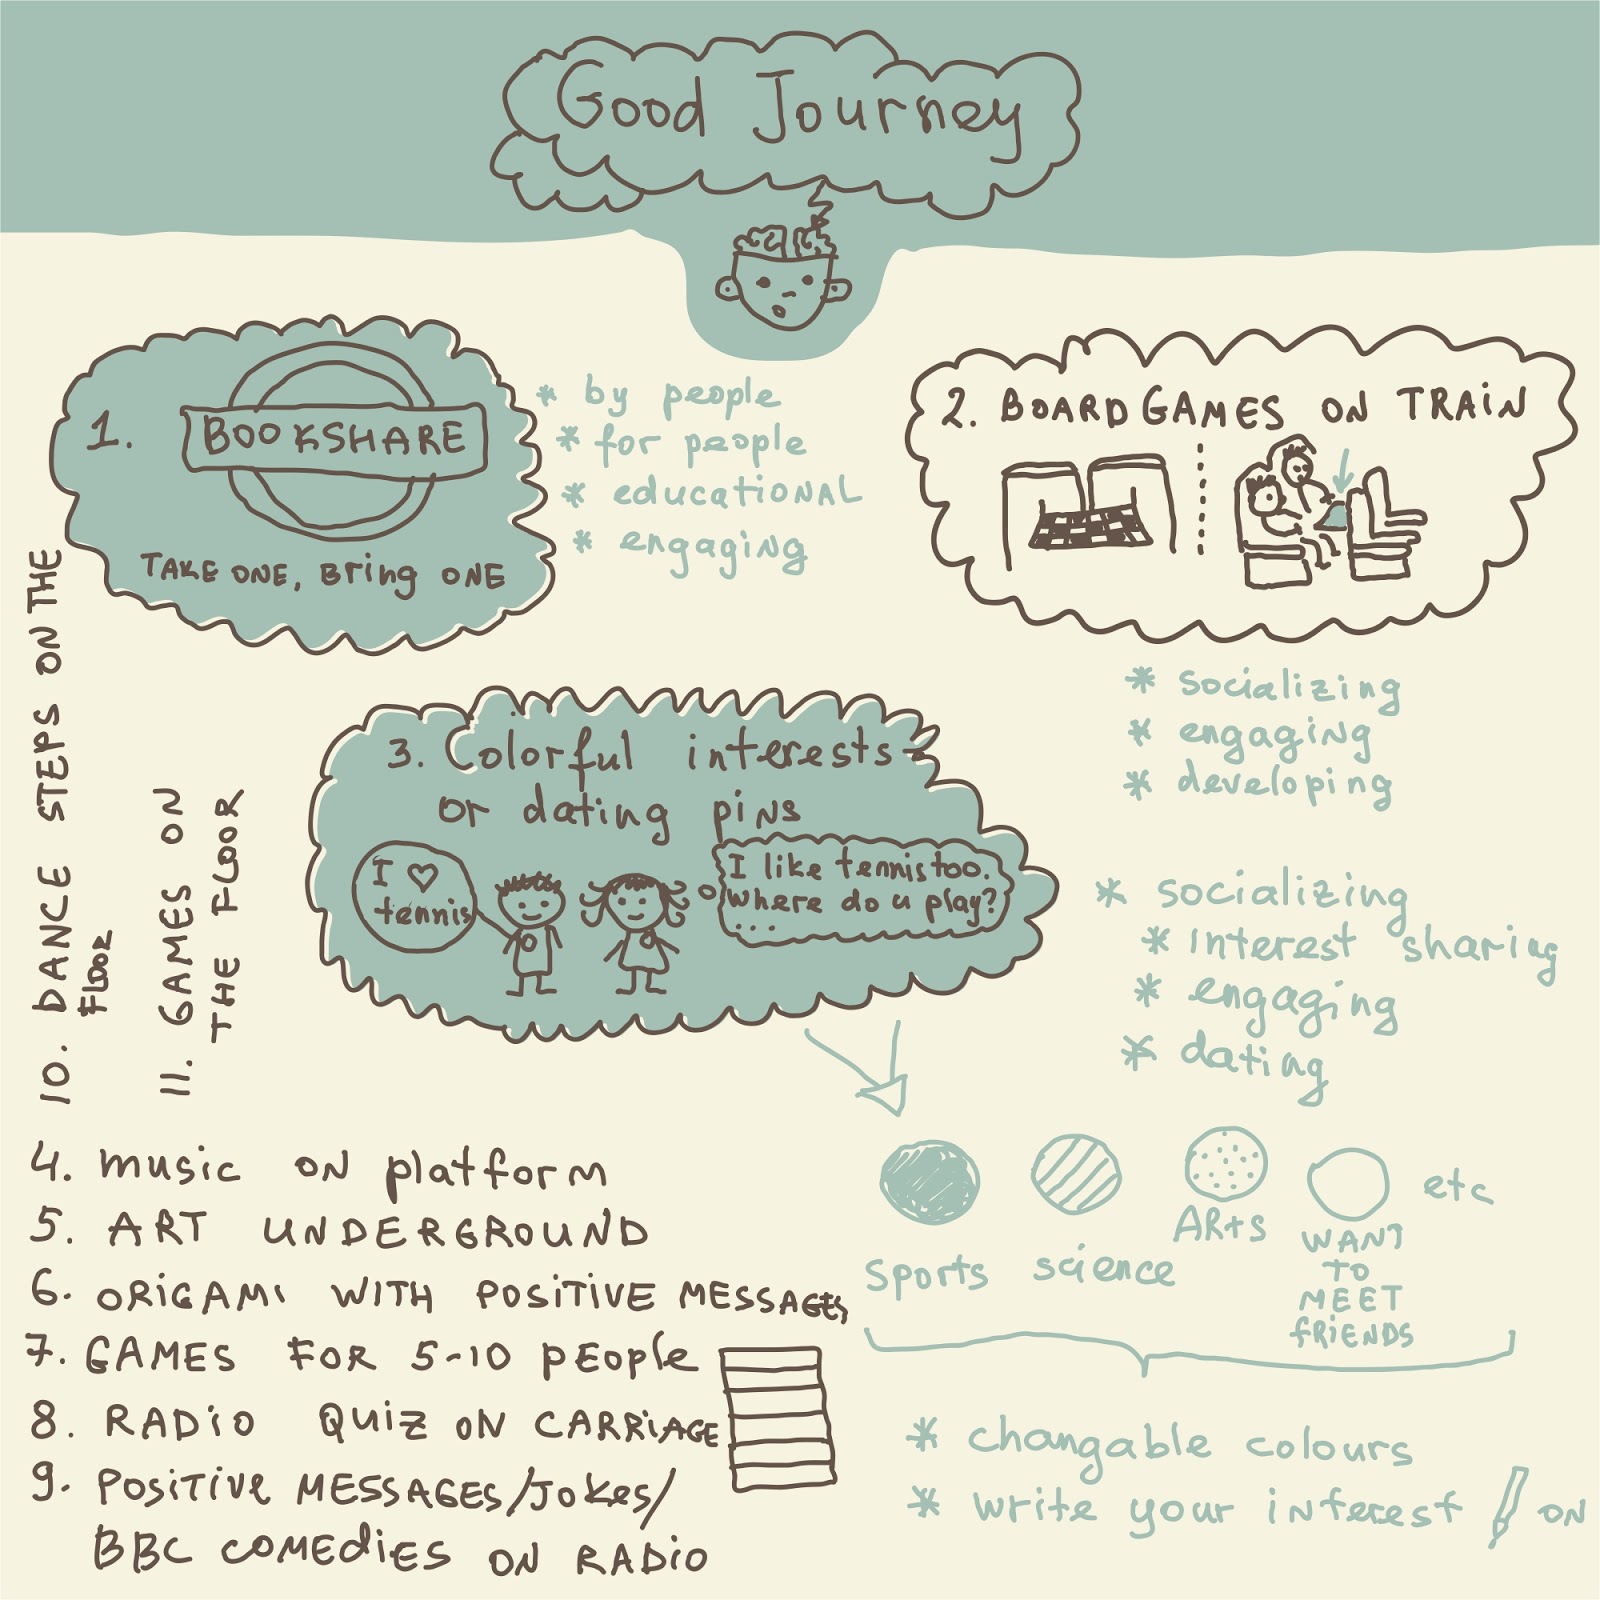 Good Journey
1. BOOKSHARE
TAKE ONE, Bring ONE
* by people
* for people
* educationAL
* engaging
2. BOARDGAMES ON TRAIN
* socializing
* engaging
* developing
3. Colorful interests
or dating pins
I ♡
tennis
I like tennis too.
Where do u play?
...
* socializing
* interest sharing
* engaging
* dating
sports
science
ARts
WANT
TO
MEET
FRiENDS
etc
* changable colours
* write your interest on
4. music on platform
5. ART UNDERGROUND
6. ORIGAMI WITH POSITIVE MESSAGES
7. GAMES FOR 5-10 people
8. RADIO QUIZ ON CARRIAGE
9. POSITIVE MESSAGES/JOKES/
BBC COMEdiES ON RADIO
10. DANCE STEPS ON THE
FLOOR
11. GAMES ON
THE FLOOR